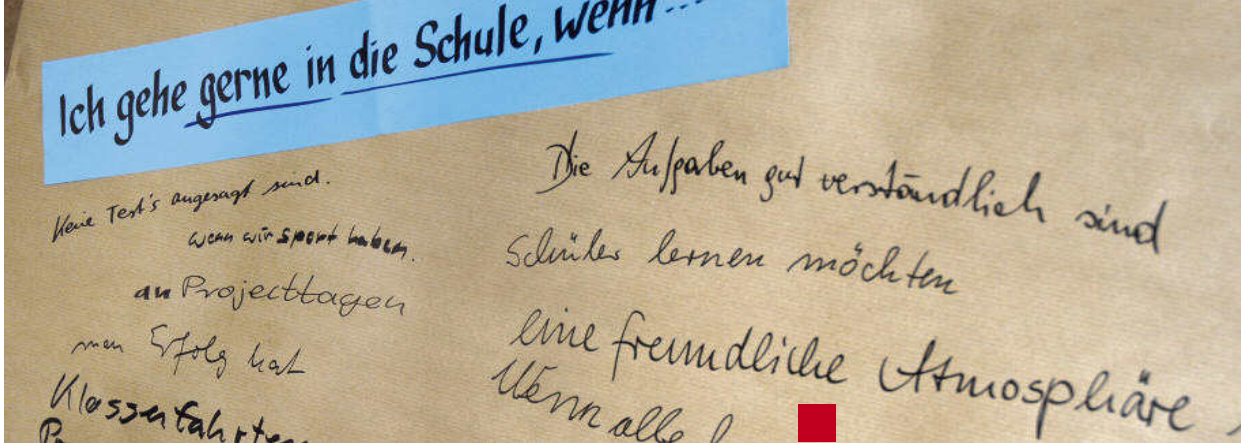 Ich gehe gerne in die Schule, wenn...
Keine Test's angesagt sind.
wenn wir Sport haben.
an Projecttagen
man Erfolg hat
Klassenfahrten
Die Aufgaben gut verständlich sind
Schüler lernen möchten
eine freundliche Atmosphäre
Wenn alle